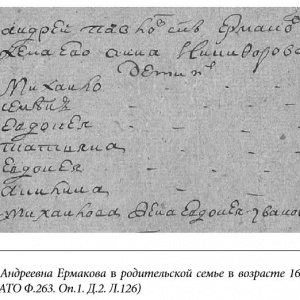 андрей павло снъ ермако
жена ево анна никифорова
дети
михаило
евдокея
татияна
евдокея
михаилова жена евдокея ивано
Андреевна Ермакова в родительской семье в возрасте 16
АТО Ф.263. Оп.1. Д.2. Л.126)